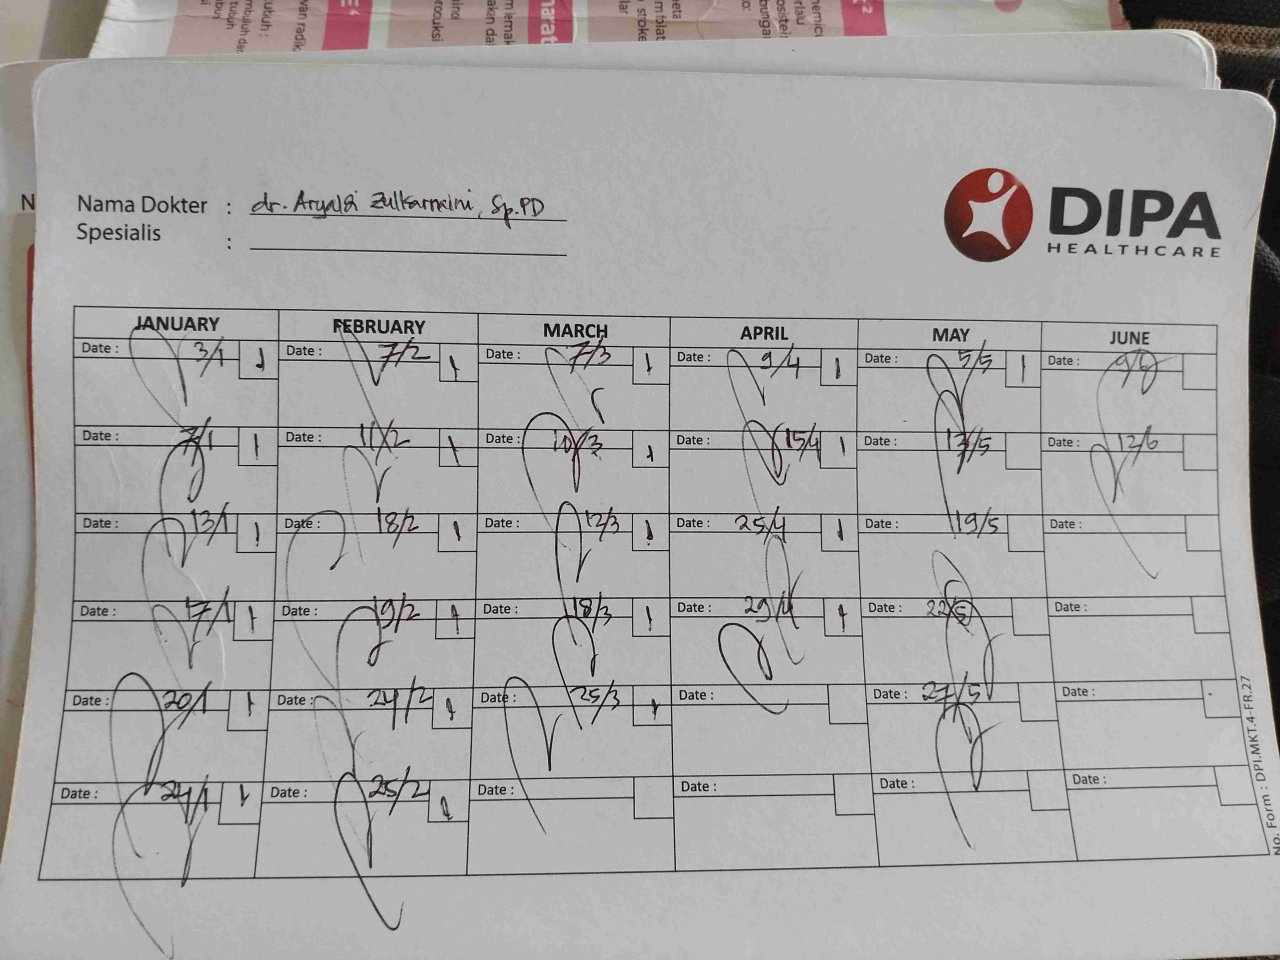 Nama Dokter : dr. Aryaldi Zulkarnaini, Sp.PD
Spesialis :
DIPA
HEALTHCARE
JANUARY FEBRUARY MARCH APRIL MAY JUNE
Date : 3/1 1 Date : 7/2 1 Date : 7/3 1 Date : 9/4 1 Date : 5/5 1 Date : 9/6
Date : 7/1 1 Date : 11/2 1 Date : 10/3 1 Date : 15/4 1 Date : 13/5 Date : 12/6
Date : 13/1 1 Date : 18/2 1 Date : 12/3 1 Date : 25/4 1 Date : 19/5 Date :
Date : 17/1 1 Date : 19/2 1 Date : 18/3 1 Date : 29/4 1 Date : 22/5 Date :
Date : 20/1 1 Date : 24/2 1 Date : 25/3 1 Date : Date : 27/5 Date :
Date : 24/1 1 Date : 25/2 1 Date : Date : Date : Date :
No. Form : DPI.MKT.4-FR.27